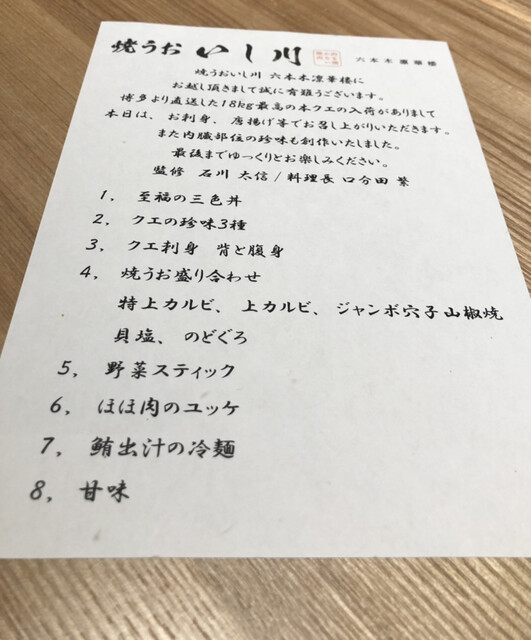 焼うお いし川 六本木凛華楼
焼うおいし川 六本木凛華楼に
お越し頂きまして誠に有難うございます。
博多より直送した18kg最高の本クエの入荷がありまして
本日は、お刺身、唐揚げ等でお召し上がりいただきます。
また内臓部位の珍味も創作いたしました。
最後までゆっくりとお楽しみください。
監修 石川 太信/料理長 口分田 繁
1, 至福の三色丼
2, クエの珍味3種
3, クエ刺身 背と腹身
4, 焼うお盛り合わせ
特上カルビ、上カルビ、ジャンボ穴子山椒焼
貝塩、のどぐろ
5, 野菜スティック
6, ほほ肉のユッケ
7, 鮪出汁の冷麺
8, 甘味